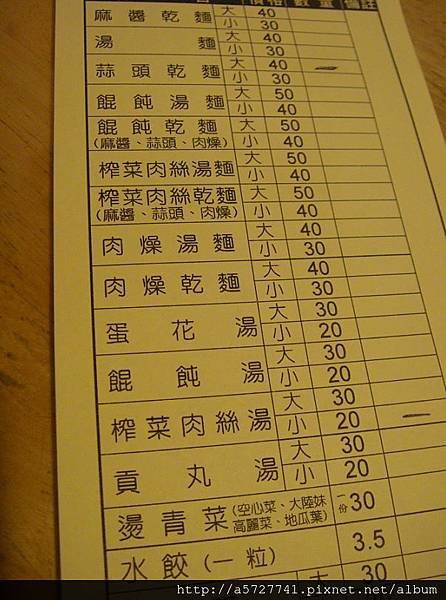 價格 數量 備註
麻醬乾麵 大 40
小 30
湯麵 大 40
小 30
蒜頭乾麵 大 40 一
小 30
餛飩湯麵 大 50
小 40
餛飩乾麵 大 50
(麻醬、蒜頭、肉燥) 小 40
榨菜肉絲湯麵 大 50
小 40
榨菜肉絲乾麵 大 50
(麻醬、蒜頭、肉燥) 小 40
肉燥湯麵 大 40
小 30
肉燥乾麵 大 40
小 30
蛋花湯 大 30
小 20
餛飩湯 大 30
小 20
榨菜肉絲湯 大 30
小 20 一
貢丸湯 大 30
小 20
燙青菜 (空心菜、大陸妹 一份 30
高麗菜、地瓜葉)
水餃(一粒) 3.5
大 30
http://a5727741.pixnet.net/album